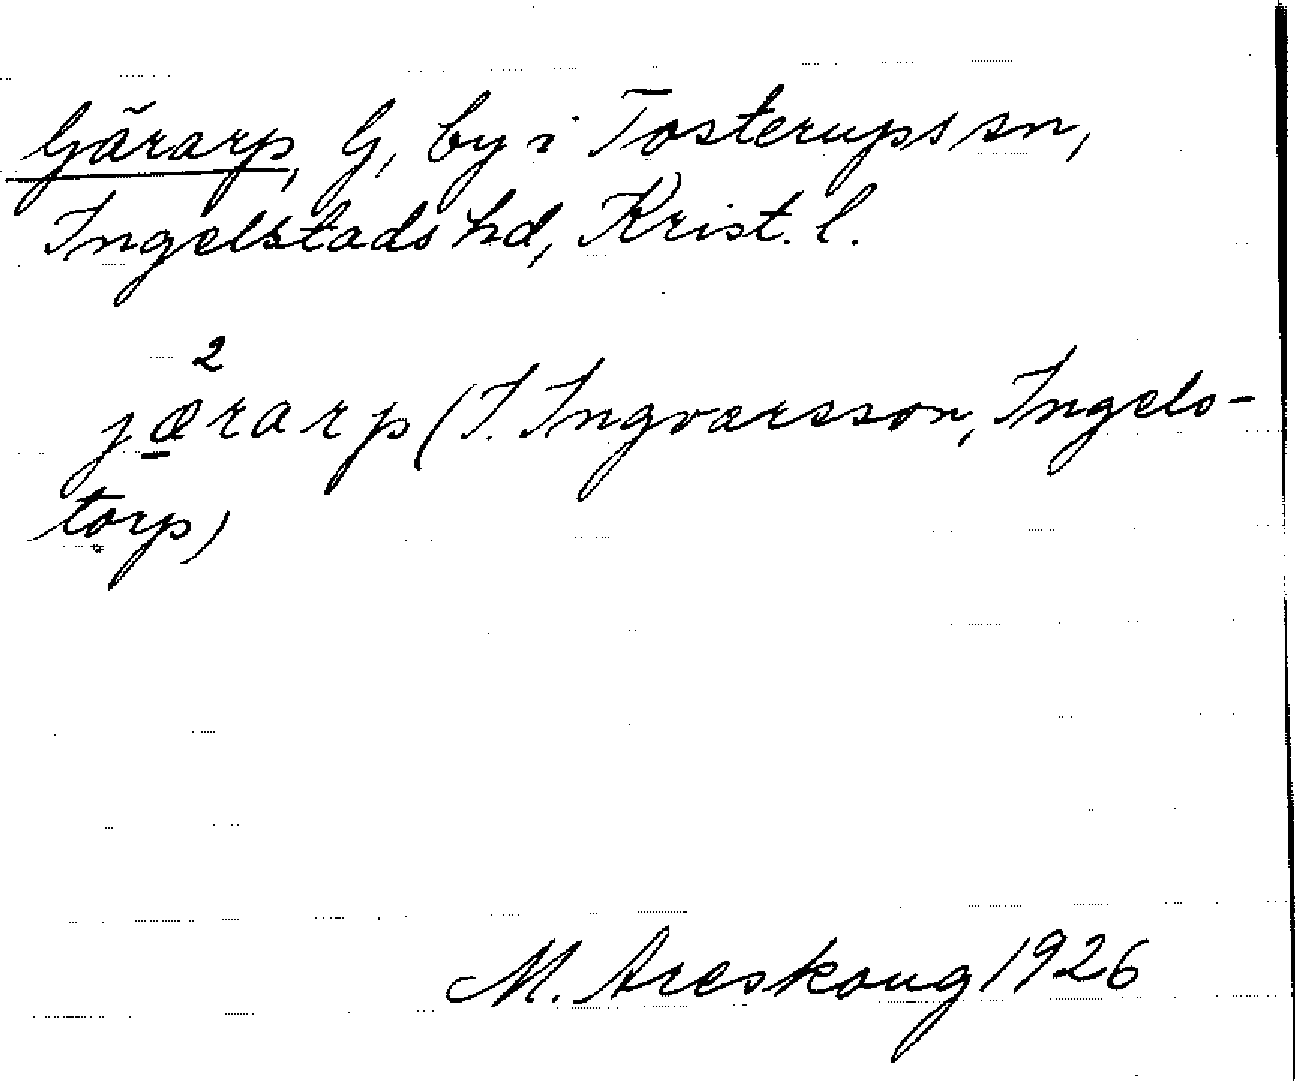 Gärarp, G, by i Tosterups sn,
Ingelstads hd, Krist. l.
2
jærarp (I. Ingvarsson, Ingels-
torp)
M. Areskoug 1926